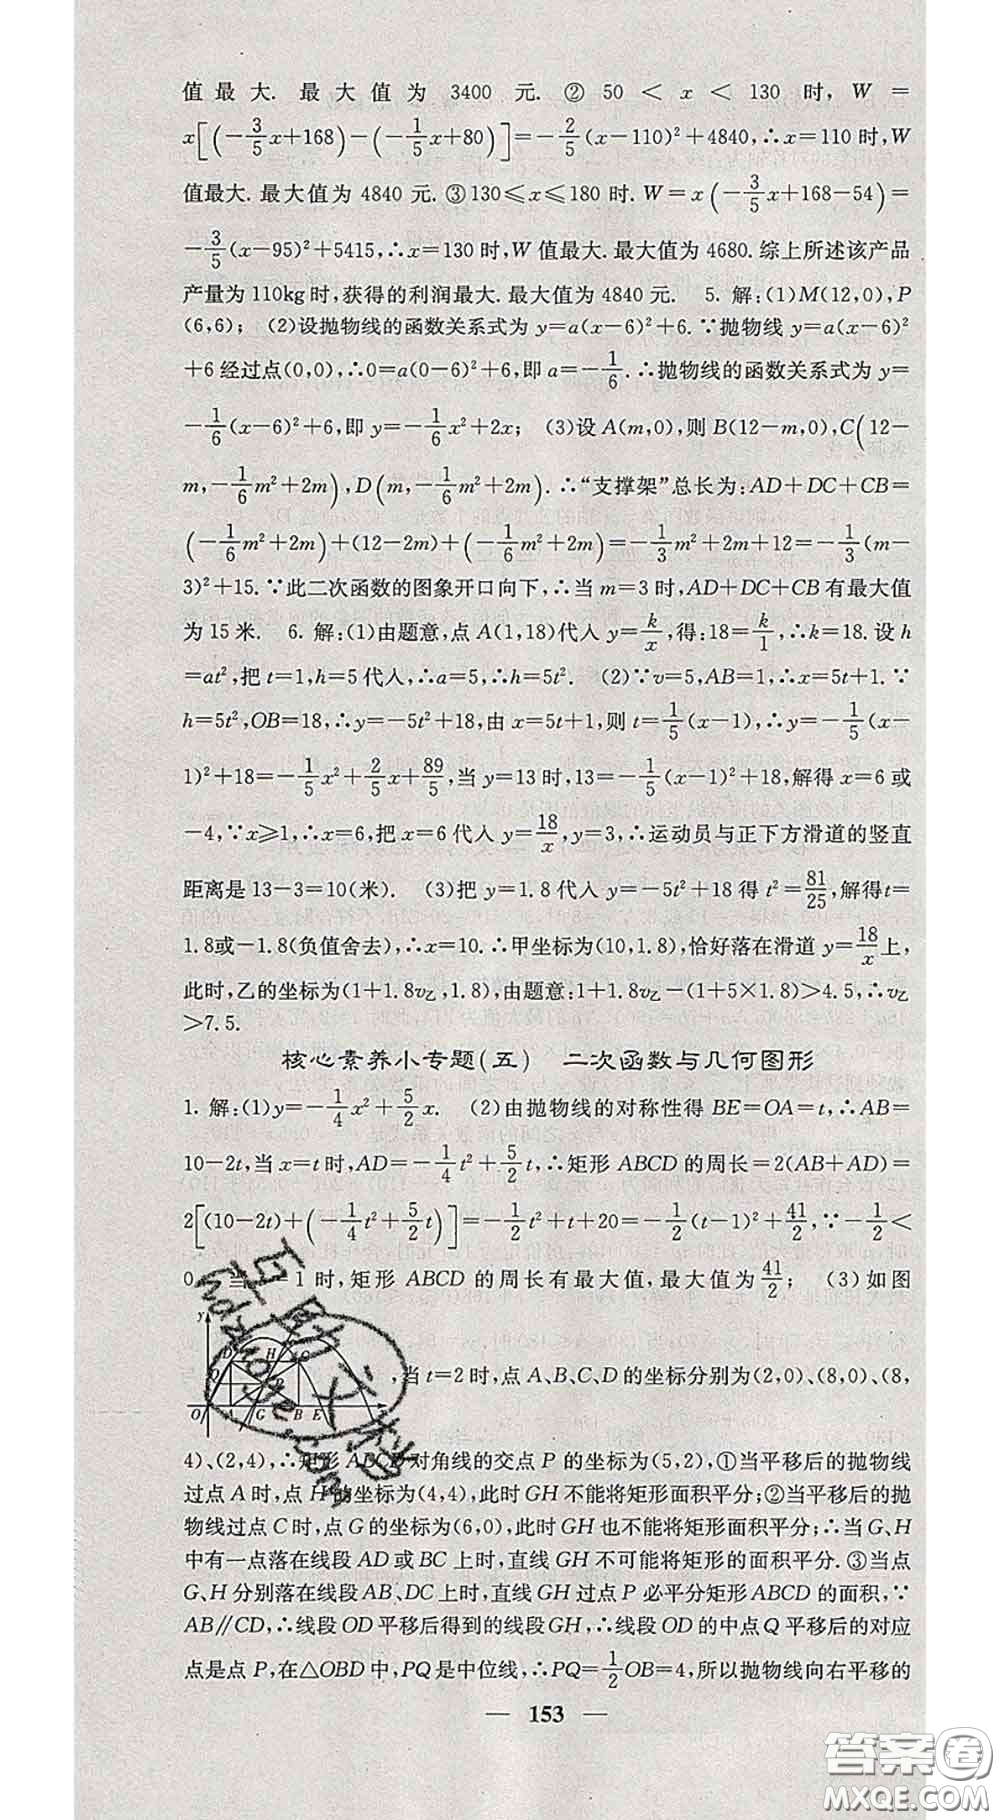 值最大. 最大值为 3400 元. ② 50 < x < 130 时, W =
x[(-3/5x+168)-(-1/5x+80)]=-2/5(x-110)²+4840,∴x=110时,W
值最大. 最大值为 4840 元. ③130≤x≤180 时. W=x(-3/5x+168-54)=
-3/5(x-95)²+5415,∴x=130时,W 值最大. 最大值为 4680. 综上所述该产品
产量为110kg时,获得的利润最大. 最大值为 4840 元. 5. 解:(1)M(12,0),P
(6,6); (2)设抛物线的函数关系式为 y=a(x-6)²+6. ∵抛物线 y=a(x-6)²
+6经过点(0,0),∴0=a(0-6)²+6,即 a=-1/6. ∴抛物线的函数关系式为 y=
-1/6(x-6)²+6,即 y=-1/6x²+2x; (3)设 A(m,0),则 B(12-m,0),C(12-
m,-1/6m²+2m),D(m,-1/6m²+2m). ∴“支撑架”总长为:AD+DC+CB=
(-1/6m²+2m)+(12-2m)+(-1/6m²+2m)=-1/3m²+2m+12=-1/3(m-
3)²+15. ∵此二次函数的图象开口向下,∴当 m=3 时,AD+DC+CB 有最大值
为 15 米. 6. 解:(1)由题意,点 A(1,18)代入 y=k/x,得:18=k/1,∴k=18. 设 h
=at²,把 t=1,h=5 代入,∴a=5,∴h=5t². (2)∵v=5,AB=1,∴x=5t+1. ∵
h=5t²,OB=18,∴y=-5t²+18,由 x=5t+1,则 t=1/5(x-1),∴y=-1/5(x-
1)²+18=-1/5x²+2/5x+89/5,当 y=13时,13=-1/5(x-1)²+18,解得 x=6 或
-4,∵x≥1,∴x=6,把 x=6 代入 y=18/x,y=3,∴运动员与正下方滑道的竖直
距离是 13-3=10(米). (3)把 y=1.8 代入 y=-5t²+18 得 t²=81/25,解得 t=
1.8或-1.8(负值舍去),∴x=10. ∴甲坐标为(10,1.8),恰好落在滑道 y=18/x上,
此时,乙的坐标为(1+1.8v乙,1.8),由题意:1+1.8v乙-(1+5×1.8)>4.5,∴v乙
>7.5.
核心素养小专题(五) 二次函数与几何图形
1. 解:(1)y=-1/4x²+5/2x. (2)由抛物线的对称性得 BE=OA=t,∴AB=
10-2t,当 x=t 时,AD=-1/4t²+5/2t,∴矩形 ABCD 的周长=2(AB+AD)=
2[(10-2t)+(-1/4t²+5/2t)]=-1/2t²+t+20=-1/2(t-1)²+41/2,∵-1/2<
0 当 1 时,矩形 ABCD 的周长有最大值,最大值为 41/2; (3)如图
y D H C Q P O A G B E x
,当 t=2 时,点 A、B、C、D 的坐标分别为(2,0)、(8,0)、(8,
4)、(2,4),∴矩形 ABCD 对角线的交点 P 的坐标为(5,2),①当平移后的抛物线
过点 A 时,点 H 的坐标为(4,4),此时 GH 不能将矩形面积平分;②当平移后的抛
物线过点 C 时,点 G 的坐标为(6,0),此时 GH 也不能将矩形面积平分;∴当 G、H
中有一点落在线段 AD 或 BC 上时,直线 GH 不可能将矩形的面积平分. ③当点
G、H 分别落在线段 AB、DC 上时,直线 GH 过点 P 必平分矩形 ABCD 的面积,∵
AB∥CD,∴线段 OD 平移后得到的线段 GH,∴线段 OD 的中点 Q 平移后的对应
点是点 P,在△OBD 中,PQ 是中位线,∴PQ=1/2OB=4,所以抛物线向右平移的
— 153 —
答案圈
MXQE.COM